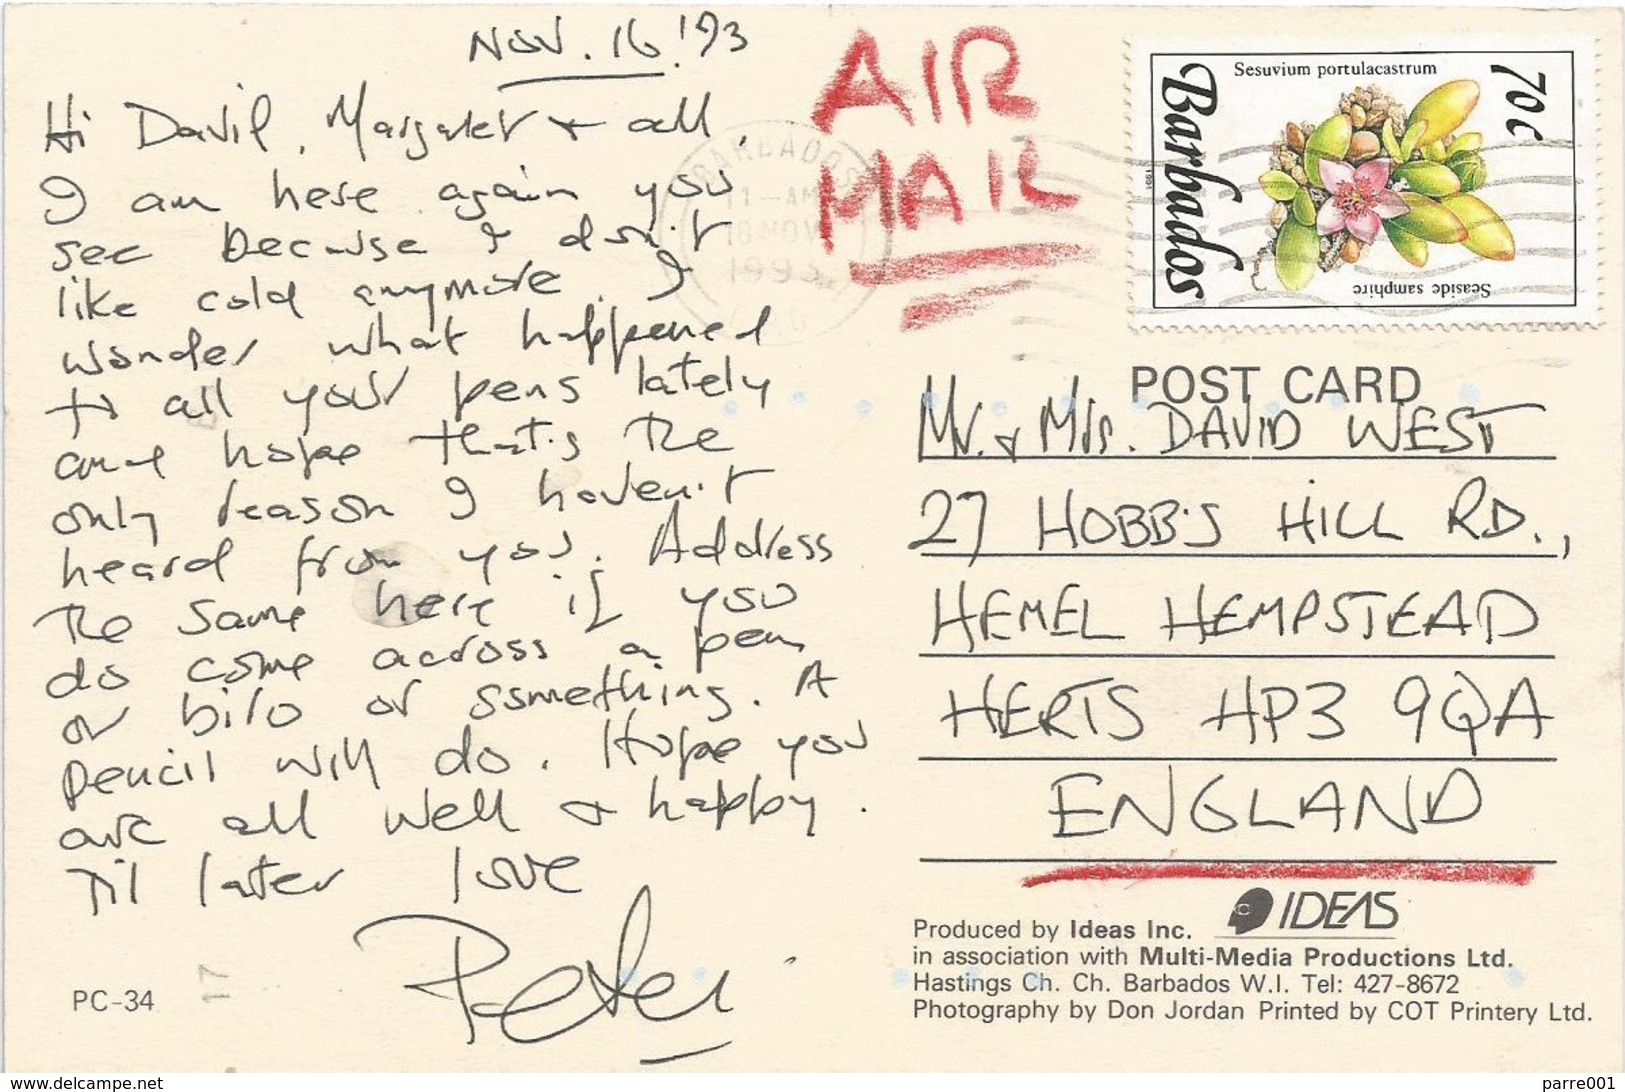 Nov. 16 '93
Hi David, Margaret + all,
I am here again you
see because I don't
like cold anymore. I
wonder what happened
to all your pens lately
and hope that's the
only reason I haven't
heard from you. Address
the same here if you
do come across a pen
or biro or something. A
pencil will do. Hope you
are all well + happy.
Til later love
Peter
PC-34
17
AIR
MAIL
BARBADOS
11-AM
18 NOV
1993
Sesuvium portulacastrum
70c
Barbados
Seaside samphire
1991
POST CARD
Mr. + Mrs. DAVID WEST
27 HOBB'S HILL RD.,
HEMEL HEMPSTEAD
HERTS HP3 9QA
ENGLAND
IDEAS
Produced by Ideas Inc.
in association with Multi-Media Productions Ltd.
Hastings Ch. Ch. Barbados W.I. Tel: 427-8672
Photography by Don Jordan Printed by COT Printery Ltd.
www.delcampe.net
parre001